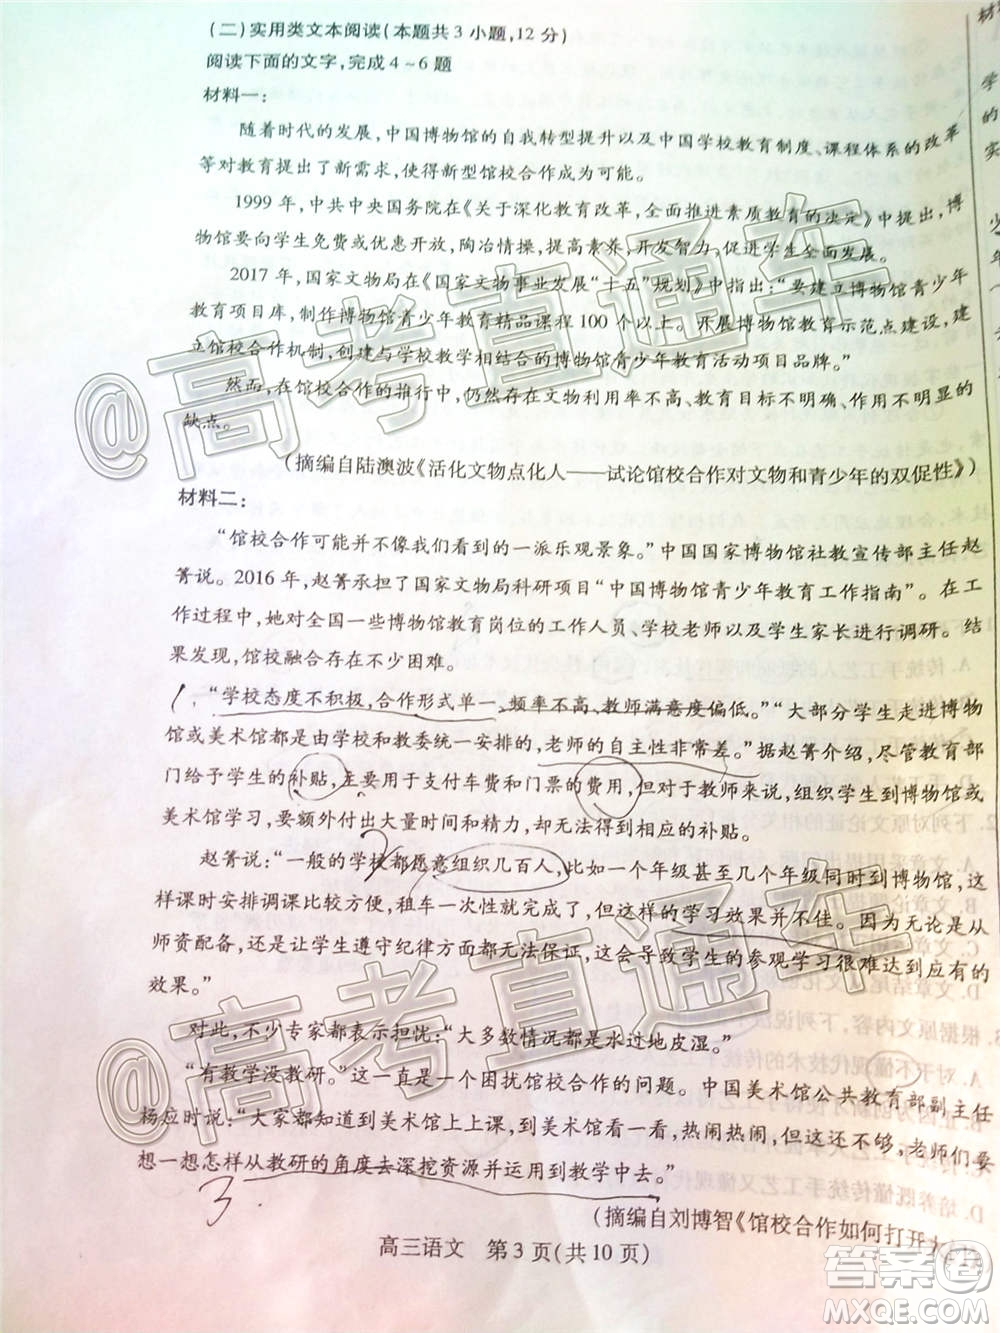 (二)实用类文本阅读(本题共3小题,12分)
阅读下面的文字,完成4~6题
材料一:
随着时代的发展,中国博物馆的自我转型提升以及中国学校教育制度、课程体系的改革
等对教育提出了新需求,使得新型馆校合作成为可能。
1999年,中共中央国务院在《关于深化教育改革,全面推进素质教育的决定》中提出,博
物馆要向学生免费或优惠开放,陶冶情操,提高素养,开发智力,促进学生全面发展。
2017年,国家文物局在《国家文物事业发展“十五”规划》中指出:“要建立博物馆青少年
教育项目库,制作博物馆青少年教育精品课程100个以上。开展博物馆教育示范点建设,建
立馆校合作机制,创建与学校教学相结合的博物馆青少年教育活动项目品牌。”
然而,在馆校合作的推行中,仍然存在文物利用率不高、教育目标不明确、作用不明显的
缺点。
(摘编自陆澳波《活化文物点化人——试论馆校合作对文物和青少年的双促性》)
材料二:
“馆校合作可能并不像我们看到的一派乐观景象。”中国国家博物馆社教宣传部主任赵
菁说。2016年,赵菁承担了国家文物局科研项目“中国博物馆青少年教育工作指南”。在工
作过程中,她对全国一些博物馆教育岗位的工作人员、学校老师以及学生家长进行调研。结
果发现,馆校融合存在不少困难。
1.“学校态度不积极,合作形式单一、频率不高、教师满意度偏低。”“大部分学生走进博物
馆或美术馆都是由学校和教委统一安排的,老师的自主性非常差。”据赵菁介绍,尽管教育部
门给予学生的补贴,主要用于支付车费和门票的费用,但对于教师来说,组织学生到博物馆或
美术馆学习,要额外付出大量时间和精力,却没有相应的补贴。
2
赵菁说:“一般的学校都愿意组织几百人,比如一个年级甚至几个年级同时到博物馆,这
样课时安排调课比较方便,租车一次性就完成了。但这样的学习效果并不佳。因为无论是从
师资配备,还是让学生遵守纪律方面都无法保证,这会导致学生的参观学习很难达到应有的
效果。”
对此,不少专家都表示担忧:“大多数情况都是水过地皮湿。”
“有教学没教研。”这一直是一个困扰馆校合作的问题。中国美术馆公共教育部副主任
杨应时说:“大家都知道到美术馆上上课,到美术馆看一看,热闹热闹,但这还不够,老师们要
想一想怎样从教研的角度去深挖资源并运用到教学中去。”
3
(摘编自刘博智《馆校合作如何打开
高三语文 第3页(共10页)
@高考直通车
@高考直通车
答案圈
MXQE.COM